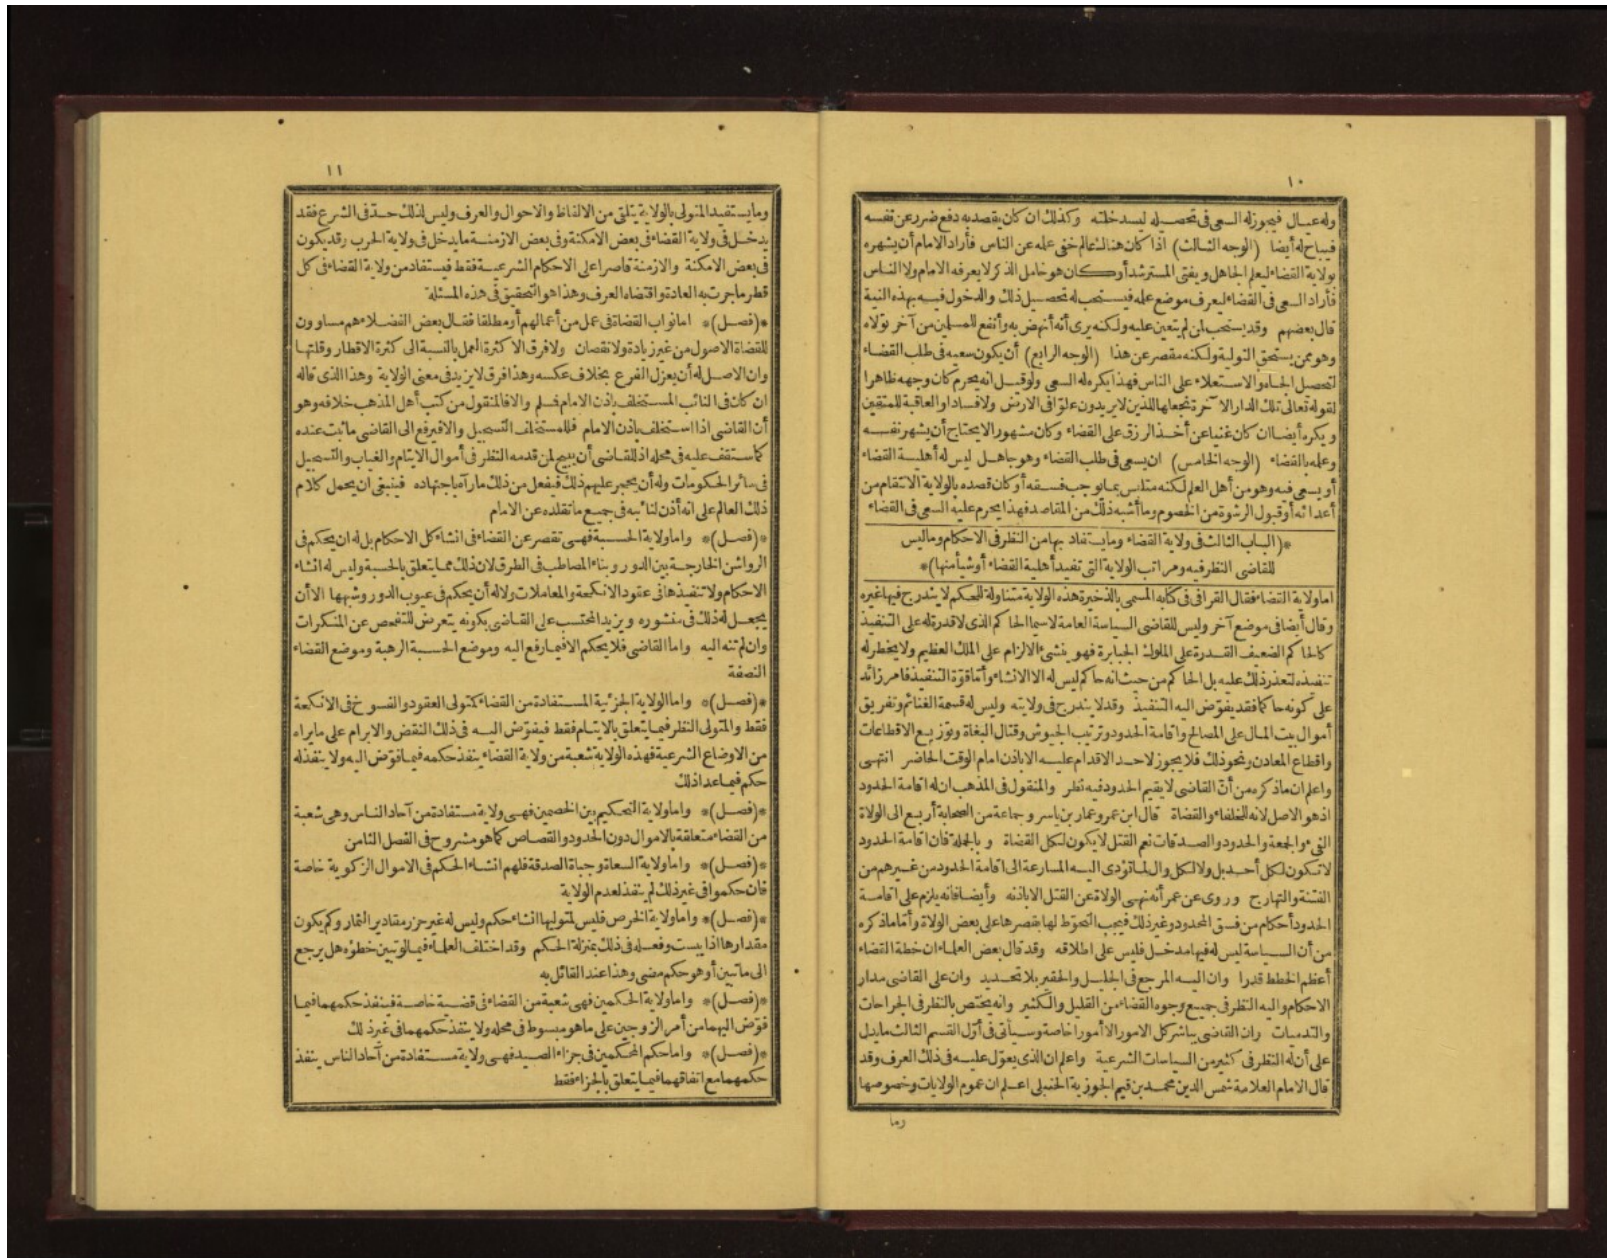 ١٠
وله عيال فيجوز له السعى فى تحصيله ليسد خلته وكذلك ان كان يقصد به دفع ضرر عن نفسه
فيباح له أيضا (الوجه الثالث) اذا كان هنالك عالم خفى علمه عن الناس فأراد الامام أن يشهره
بولاية القضاء ليعلم الجاهل ويفتى المسترشد أو كان هو خامل الذكر لا يعرفه الامام ولا الناس
فأراد السعى فى القضاء ليعرف موضع علمه فيستحب له تحصيل ذلك والدخول فيه بهذه النية
قال بعضهم وقد يستحب لمن لم يتعين عليه ولكنه يرى أنه أنهض به وأنفع للمسلمين من آخر تولاه
وهو ممن يستحق التولية ولكنه مقصر عن هذا (الوجه الرابع) أن يكون سعيه فى طلب القضاء
لتحصيل الجاه والاستعلاء على الناس فهذا يكره له السعى ولو قيل انه يحرم كان وجهه ظاهرا
لقوله تعالى تلك الدار الآخرة نجعلها للذين لا يريدون علوا فى الارض ولا فسادا والعاقبة للمتقين
ويكره أيضا ان كان غنيا عن أخذ الرزق على القضاء وكان مشهورا لا يحتاج أن يشهر نفسه
وعلمه بالقضاء (الوجه الخامس) ان يسعى فى طلب القضاء وهو جاهل ليس له أهلية القضاء
أو يسعى فيه وهو من أهل العلم لكنه متلبس بما يوجب فسقه أو كان قصده بالولاية الانتقام من
أعدائه أو قبول الرشوة من الخصوم وما أشبه ذلك من المقاصد فهذا يحرم عليه السعى فى القضاء
*(الباب الثالث فى ولاية القضاء وما يستفاد بها من النظر فى الاحكام وما ليس
للقاضى النظر فيه ومراتب الولاية التى تفيد أهلية القضاء أو شيأ منها)*
اما ولاية القضاء فقال القرافى فى كتابه المسمى بالذخيرة هذه الولاية متناولة للحكم لا يندرج فيها غيره
وقال أيضا فى موضع آخر وليس للقاضى السياسة العامة لا سيما الحاكم الذى لا قدرة له على التنفيذ
كالحاكم الضعيف القدرة على الملوك الجبابرة فهو ينشئ الالزام على الملك العظيم ولا يخطر له
تنفيذه لتعذر ذلك عليه بل الحاكم من حيث انه حاكم ليس له الا الانشاء وأما قوة التنفيذ فامر زائد
على كونه حاكما فقد يفوض اليه التنفيذ وقد لا يندرج فى ولايته وليس له قسمة الغنائم وتفريق
أموال بيت المال على المصالح واقامة الحدود وترتيب الجيوش وقتال البغاة وتوزيع الاقطاعات
واقطاع المعادن ونحو ذلك فلا يجوز لاحد الاقدام عليه الا باذن امام الوقت الحاضر انتهى
واعلم ان ما ذكره من أن القاضى لا يقيم الحدود فيه نظر والمنقول فى المذهب ان له اقامة الحدود
اذ هو الاصل لانه للخلفاء والقضاة قال ابن عمر وعمار بن ياسر وجماعة من الصحابة أربع الى الولاة
الفىء والجمعة والحدود والصدقات نعم القتل لا يكون لكل القضاة وبالجملة فان اقامة الحدود
لا تكون لكل أحد بل ولا لكل وال لما تؤدى اليه المسارعة الى اقامة الحدود من غيرهم من
الفتنة والتهارج وروى عن عمر أنه نهى الولاة عن القتل الا باذنه وأيضا فانه يلزم على اقامة
الحدود أحكام من فسق المحدود وغير ذلك فيجب التحوط لها بقصرها على بعض الولاة وأما ما ذكره
من أن السياسة ليس له فيها مدخل فليس على اطلاقه وقد قال بعض العلماء ان خطة القضاء
أعظم الخطط قدرا وان اليه المرجع فى الجليل والحقير بلا تحديد وان على القاضى مدار
الاحكام واليه النظر فى جميع وجوه القضاء من القليل والكثير وانه يختص بالنظر فى الجراحات
والتدميات وان القاضى يباشر كل الامور الا أمورا خاصة وسيأتى فى أول القسم الثالث ما يدل
على أن له النظر فى كثير من السياسات الشرعية واعلم ان الذى يعول عليه فى ذلك العرف وقد
قال الامام العلامة شمس الدين محمد بن قيم الجوزية الحنبلى اعلم ان عموم الولايات وخصوصها
وما
١١
وما يستفيد المتولى بالولاية يتلقى من الالفاظ والاحوال والعرف وليس لذلك حد فى الشرع فقد
يدخل فى ولاية القضاء فى بعض الامكنة وفى بعض الازمنة ما يدخل فى ولاية الحرب وقد يكون
فى بعض الامكنة والازمنة قاصرا على الاحكام الشرعية فقط فيستفاد من ولاية القضاء فى كل
قطر ما جرت به العادة واقتضاه العرف وهذا هو التحقيق فى هذه المسئلة
*(فصل)* اما نواب القضاة فى عمل من أعمالهم أو مطلقا فقال بعض الفضلاء هم مساوون
للقضاة الاصول من غير زيادة ولا نقصان ولا فرق الا كثرة العمل بالنسبة الى كثرة الاقطار وقلتها
وان الاصل له أن يعزل الفرع بخلاف عكسه وهذا فرق لا يزيد فى معنى الولاية وهذا الذى قاله
ان كان فى النائب المستخلف باذن الامام فسلم والا فالمنقول من كتب أهل المذهب خلافه وهو
أن القاضى اذا استخلف باذن الامام فللمستخلف التسجيل والا فيرفع الى القاضى ما ثبت عنده
كما ستقف عليه فى محله اذ للقاضى أن يبيح لمن قدمه النظر فى أموال الايتام والغياب والتسجيل
فى سائر الحكومات وله أن يحجر عليهم ذلك فيفعل من ذلك ما رآه باجتهاده فينبغى ان يحمل كلام
ذلك العالم على انه أذن لنائبه فى جميع ما تقلده عن الامام
*(فصل)* واما ولاية الحسبة فهى تقصر عن القضاء فى انشاء كل الاحكام بل له ان يحكم فى
الرواشن الخارجة بين الدور وبناء المصاطب فى الطرق لان ذلك مما يتعلق بالحسبة وليس له انشاء
الاحكام ولا تنفيذها فى عقود الانكحة والمعاملات ولا له أن يحكم فى عيوب الدور وشبهها الا أن
يجعل له ذلك فى منشوره ويزيد المحتسب على القاضى بكونه يتعرض للتفحص عن المنكرات
وان لم تنه اليه واما القاضى فلا يحكم الا فيما رفع اليه وموضع الحسبة الرهبة وموضع القضاء
النصفة
*(فصل)* واما الولاية الجزئية المستفادة من القضاء كتولى العقود والفسوخ فى الانكحة
فقط والمتولى النظر فيما يتعلق بالايتام فقط فيفوض اليه فى ذلك النقض والابرام على ما يراه
من الاوضاع الشرعية فهذه الولاية شعبة من ولاية القضاء ينفذ حكمه فيما فوض اليه ولا ينفذ له
حكم فيما عدا ذلك
*(فصل)* واما ولاية التحكيم بين الخصمين فهى ولاية مستفادة من آحاد الناس وهى شعبة
من القضاء متعلقة بالاموال دون الحدود والقصاص كما هو مشروح فى الفصل الثامن
*(فصل)* واما ولاية السعاة وجباة الصدقة فلهم انشاء الحكم فى الاموال الزكوية خاصة
فان حكموا فى غير ذلك لم ينفذ لعدم الولاية
*(فصل)* واما ولاية الخرص فليس لمتوليها انشاء حكم وليس له غير حزر مقادير الثمار وكم يكون
مقدارها اذا يبست وفعله فى ذلك بمنزلة الحكم وقد اختلف العلماء فيما لو تبين خطؤه هل يرجع
الى ما تبين أو هو حكم مضى وهذا عند القائل به
*(فصل)* واما ولاية الحكمين فهى شعبة من القضاء فى قضية خاصة فينفذ حكمهما فيما
فوض اليهما من أمر الزوجين على ما هو مبسوط فى محله ولا ينفذ حكمهما فى غير ذلك
*(فصل)* واما حكم المحكمين فى جزاء الصيد فهى ولاية مستفادة من آحاد الناس ينفذ
حكمهما مع اتفاقهما فيما يتعلق بالجزاء فقط